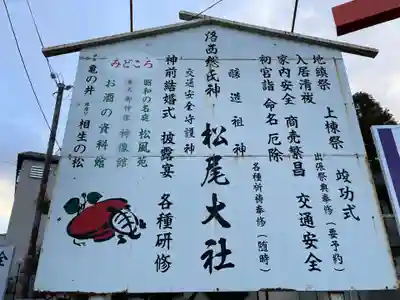 地鎮祭　上棟祭　竣功式
入居清祓　出張祭典奉修（要予約）
家内安全　商売繁昌　交通安全
初宮詣　命名　厄除　各種祈祷奉修（随時）
洛西総氏神
醸造祖神
松尾大社
交通安全守護神
神前結婚式　披露宴　各種研修
みどころ
昭和の名庭　松風苑
重文御神像　神像館
お酒の資料館
亀の井　相生の松